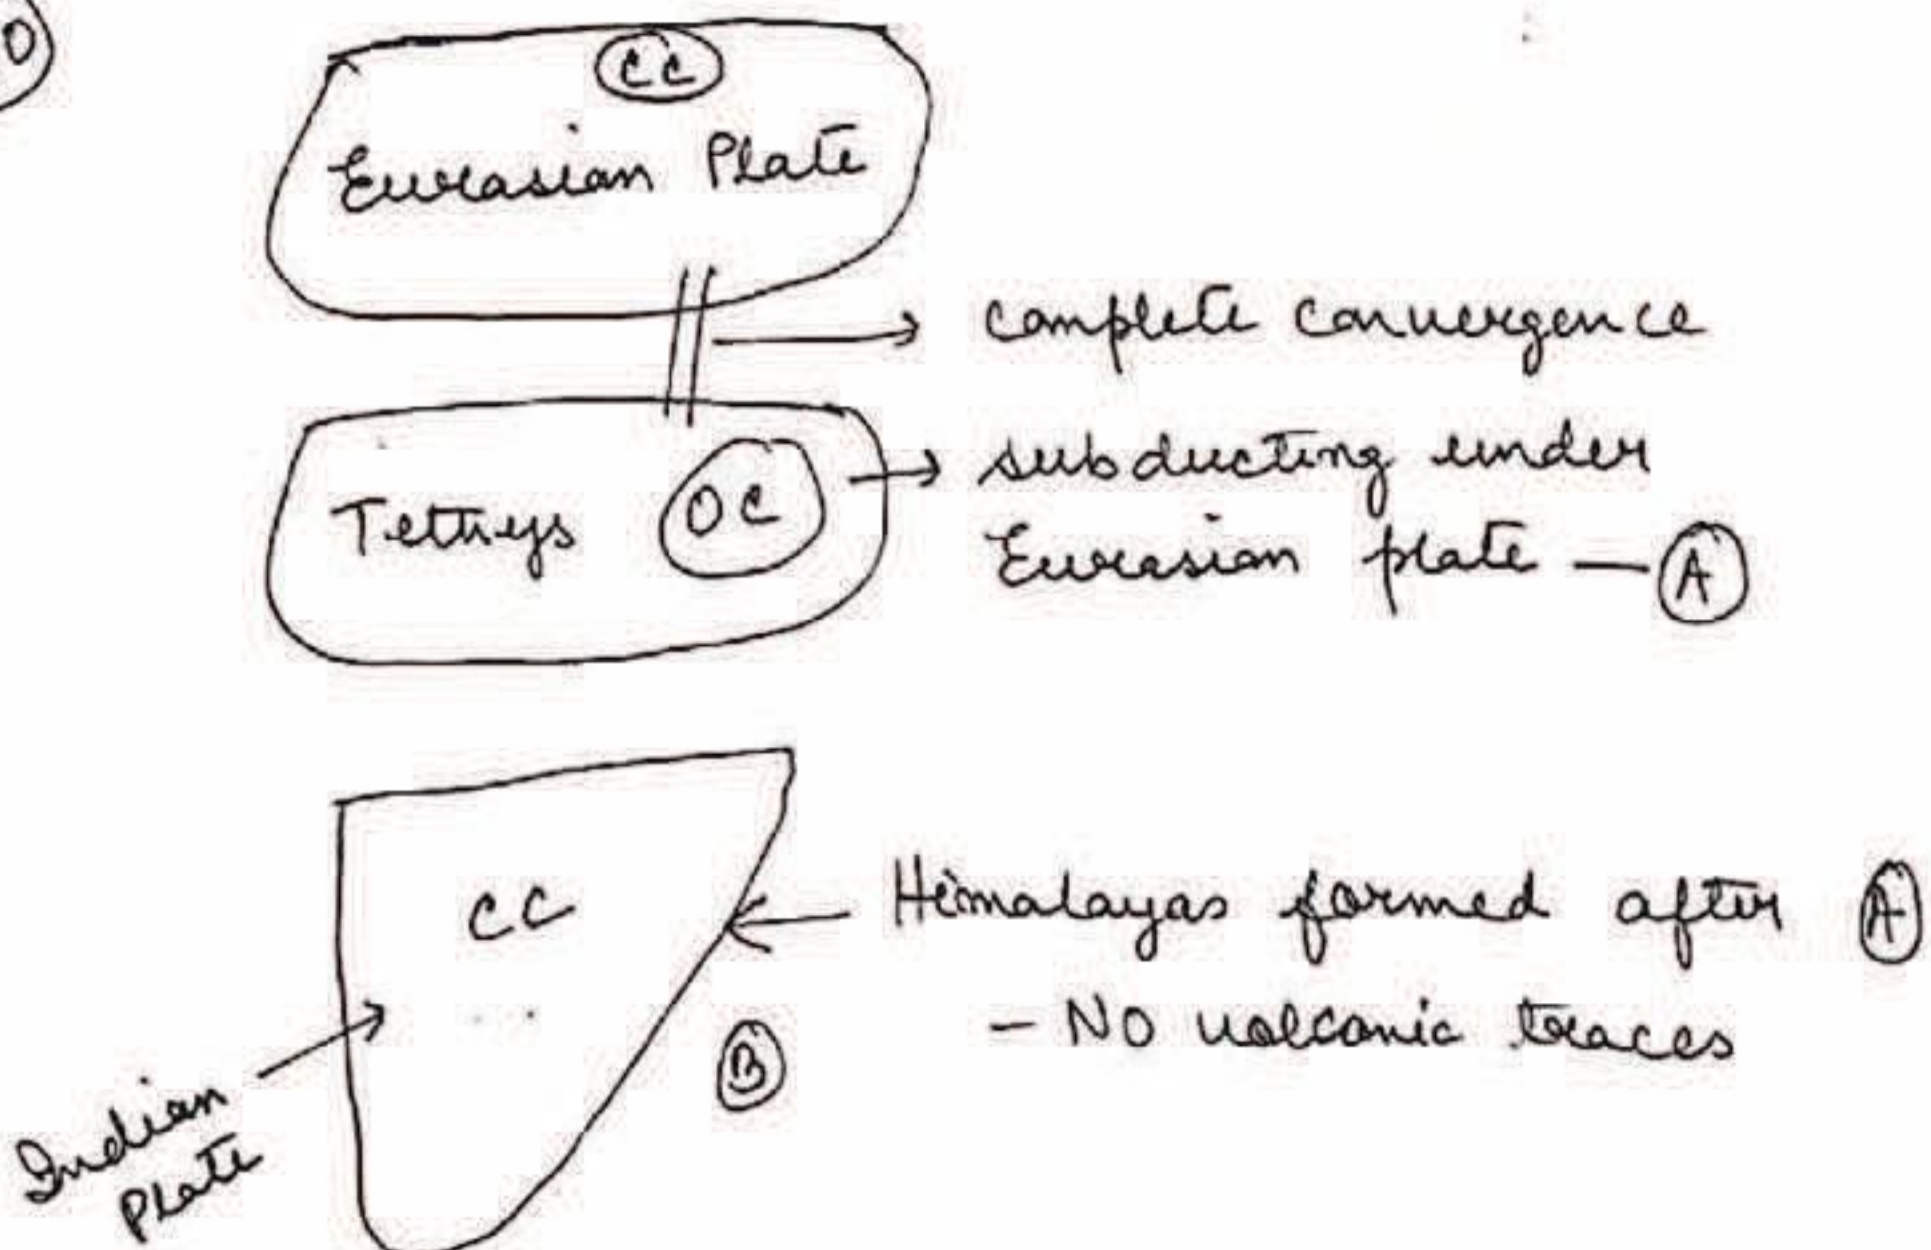 CC
Eurasian Plate
complete convergence
Tethys OC
subducting under
Eurasian plate — A
CC
Himalayas formed after A
- NO volcanic traces
B
Indian
Plate